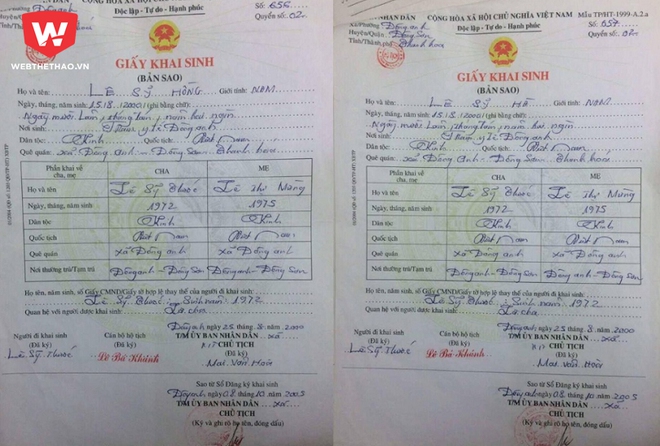 WEBTHETHAO.VN
NHÂN DÂN CỘNG HÒA XÃ HỘI CHỦ NGHĨA VIỆT NAM
Độc lập - Tự do - Hạnh phúc
Số: 656
Quyển số: 02
GIẤY KHAI SINH
(BẢN SAO)
Họ và tên: LÊ SỸ HỒNG Giới tính: NAM
Ngày, tháng, năm sinh: 15.8.2000 (ghi bằng chữ):
Ngày mười lăm, tháng tám, năm hai ngàn
Nơi sinh: Trạm y tế Đông anh
Dân tộc: Kinh Quốc tịch: Việt Nam
Quê quán: xã Đông Anh - Đông Sơn - Thanh hóa
Phần khai về cha, mẹ CHA MẸ
Họ và tên Lê Sỹ Thược Lê Thị Măng
Ngày, tháng, năm sinh 1972 1975
Dân tộc Kinh Kinh
Quốc tịch Việt Nam Việt Nam
Quê quán xã Đông anh xã Đông anh
Nơi thường trú/Tạm trú Đông anh - Đông Sơn Đông anh - Đông Sơn
Họ tên, số Giấy CMND/Giấy tờ hợp lệ thay thế của người đi khai sinh:
Lê Sỹ Thược; Sinh năm 1972
Quan hệ với người được khai sinh: Là cha
Đông anh ngày 25 tháng 8 năm 2000
Người đi khai sinh Cán bộ hộ tịch T/M ỦY BAN NHÂN DÂN xã
(Đã ký) (Đã ký) CHỦ TỊCH
(Đã ký)
Lê Sỹ Thược Lê Bá Khánh Mai Văn Hoà
Sao từ Sổ Đăng ký khai sinh
Đông anh ngày 08 tháng 10 năm 2005
T/M ỦY BAN NHÂN DÂN xã
CHỦ TỊCH
(Ký và ghi rõ họ tên, đóng dấu)
NHÂN DÂN CỘNG HÒA XÃ HỘI CHỦ NGHĨA VIỆT NAM Mẫu TPHT-1999-A.2.a
Xã/Phường Đông anh
Huyện/Quận Đông Sơn
Tỉnh/Thành phố Thanh hóa
Độc lập - Tự do - Hạnh phúc
Số: 657
Quyển số: 02
GIẤY KHAI SINH
(BẢN SAO)
Họ và tên: LÊ SỸ HÀ Giới tính: NAM
Ngày, tháng, năm sinh: 15.8.2000 (ghi bằng chữ):
Ngày mười lăm, tháng tám, năm hai ngàn
Nơi sinh: Trạm y tế Đông anh
Dân tộc: Kinh Quốc tịch: Việt Nam
Quê quán: xã Đông Anh - Đông Sơn - Thanh hóa
Phần khai về cha, mẹ CHA MẸ
Họ và tên Lê Sỹ Thược Lê Thị Măng
Ngày, tháng, năm sinh 1972 1975
Dân tộc Kinh Kinh
Quốc tịch Việt Nam Việt Nam
Quê quán xã Đông anh xã Đông anh
Nơi thường trú/Tạm trú Đông anh - Đông Sơn Đông anh - Đông Sơn
Họ tên, số Giấy CMND/Giấy tờ hợp lệ thay thế của người đi khai sinh:
Lê Sỹ Thược; Sinh năm 1972
Quan hệ với người được khai sinh: Là cha
Đông anh ngày 25 tháng 8 năm 2000
Người đi khai sinh Cán bộ hộ tịch T/M ỦY BAN NHÂN DÂN xã
(Đã ký) (Đã ký) CHỦ TỊCH
(Đã ký)
Lê Sỹ Thược Lê Bá Khánh Mai Văn Hoà
Sao từ Sổ Đăng ký khai sinh
Đông anh ngày 08 tháng 10 năm 2005
T/M ỦY BAN NHÂN DÂN xã
CHỦ TỊCH
(Ký và ghi rõ họ tên, đóng dấu)